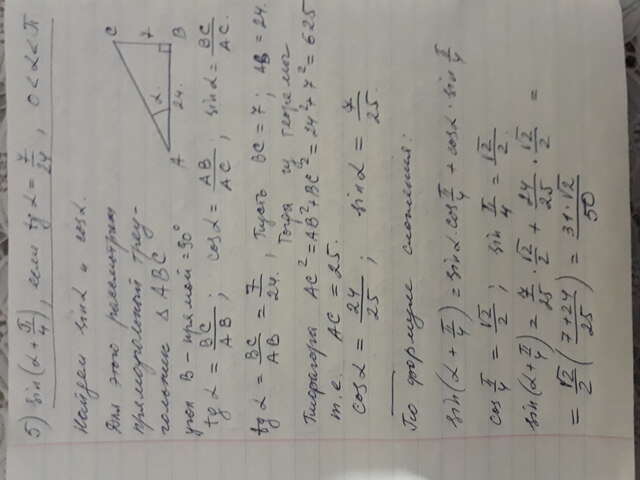 5) sin(α + π/4), если tg α = 7/24, 0 < α < π
Найдем sinα и cosα.
Для этого рассмотрим
прямоугольный треу-
гольник Δ ABC
угол B – прямой = 90°
C
α
7
A
24.
B
tg α = BC/AB ; cosα = AB/AC ; sinα = BC/AC.
tg α = BC/AB = 7/24. , Пусть BC = 7 ; AB = 24.
Тогда из теоремы
Пифагора AC² = AB² + BC² = 24² + 7² = 625
т.е. AC = 25.
cosα = 24/25 ; sinα = 7/25.
По формуле сложения:
sin(α + π/4) = sinα · cos π/4 + cosα · sin π/4
cos π/4 = √2/2 ; sin π/4 = √2/2.
sin(α + π/4) = 7/25 · √2/2 + 24/25 · √2/2 =
= √2/2 (7+24/25) = 31·√2/50